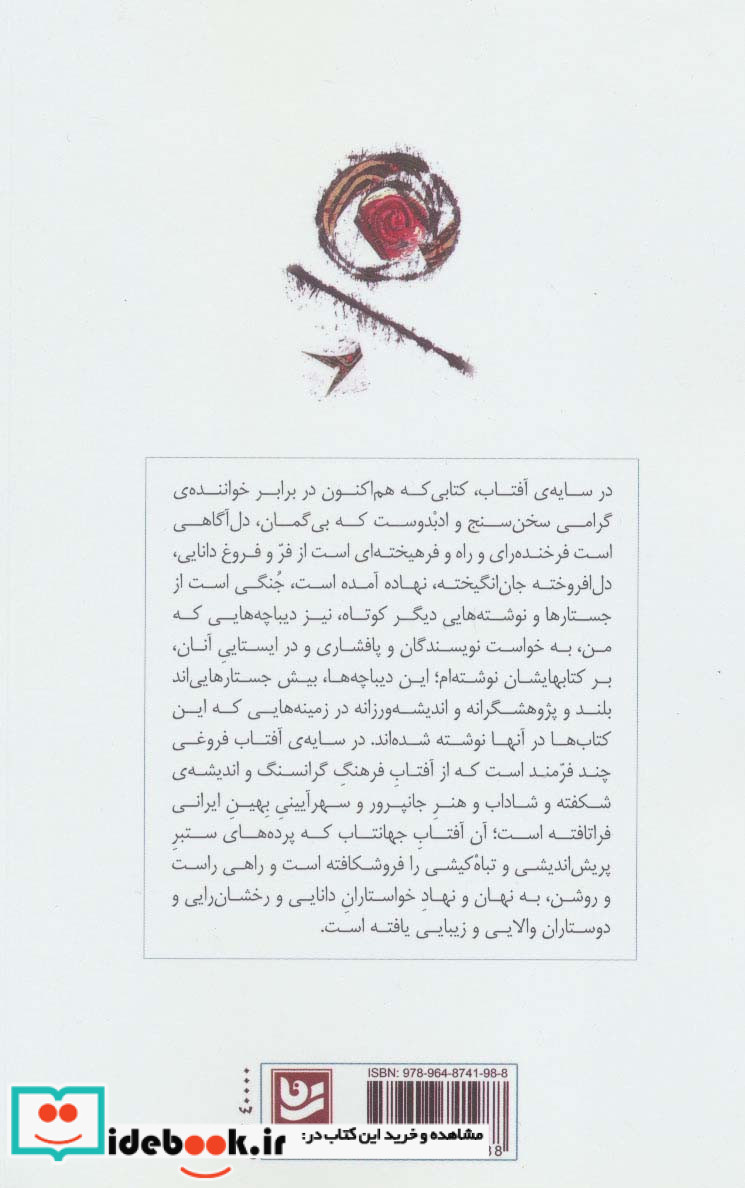 در سایه‌ی آفتاب، کتابی که هم‌اکنون در برابر خواننده‌ی
گرامی سخن‌سنج و ادبْدوست که بی‌گمان، دل‌آگاهی
است فرخنده‌رای و راه و فرهیخته‌ای است از فرّ و فروغ دانایی،
دل‌افروخته جان‌انگیخته، نهاده آمده است، جُنگی است از
جستارها و نوشته‌هایی دیگر کوتاه، نیز دیباچه‌هایی که
من، به خواست نویسندگان و پافشاری و در ایستاییِ آنان،
بر کتابهایشان نوشته‌ام؛ این دیباچه‌ها، بیش جستارهایی‌اند
بلند و پژوهشگرانه و اندیشه‌ورزانه در زمینه‌هایی که این
کتاب‌ها در آنها نوشته شده‌اند. در سایه‌ی آفتاب فروغی
چند فرّمند است که از آفتابِ فرهنگِ گرانسنگ و اندیشه‌ی
شکفته و شاداب و هنرِ جانپرور و سهرآیینیِ بِهینِ ایرانی
فراتافته است؛ آن آفتابِ جهانتاب که پرده‌های ستبرِ
پریش‌اندیشی و تباهْ‌کیشی را فروشکافته است و راهی راست
و روشن، به نهان و نهادِ خواستارانِ دانایی و رخشان‌رایی و
دوستاران والایی و زیبایی یافته است.
ISBN: 978-964-8741-98-8
مشاهده و خرید این کتاب در:
idebook.ir